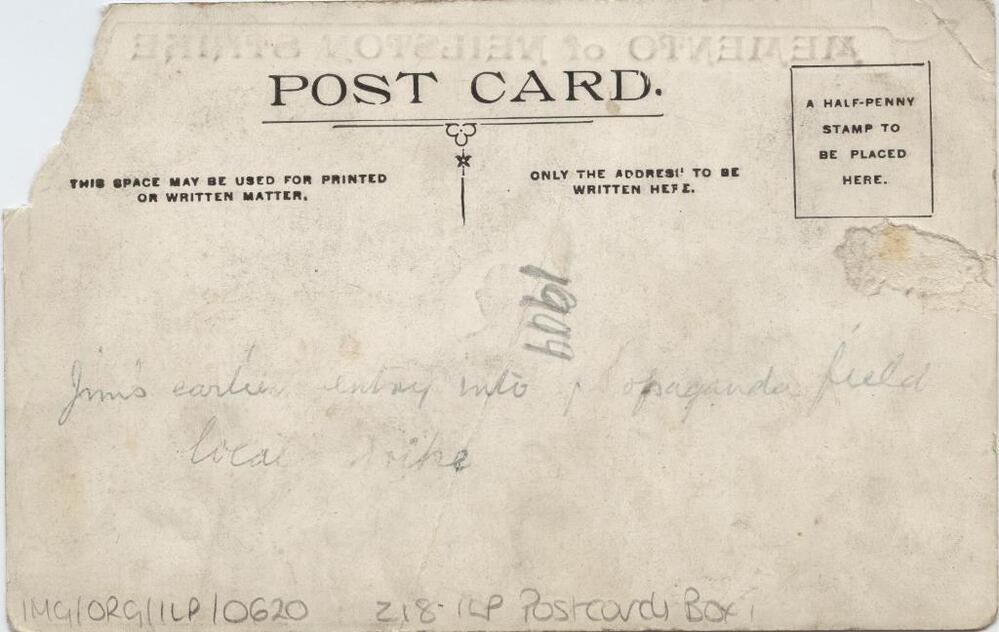 MEMENTO of NEILSTON STRIKE
POST CARD.
A HALF-PENNY
STAMP TO
BE PLACED
HERE.
THIS SPACE MAY BE USED FOR PRINTED
OR WRITTEN MATTER.
ONLY THE ADDRESS TO BE
WRITTEN HERE.
1909
Jim's earlier entry into propaganda field
local strike
IMG/ORG/ILP/0620 Z18-ILP Postcards Box 1